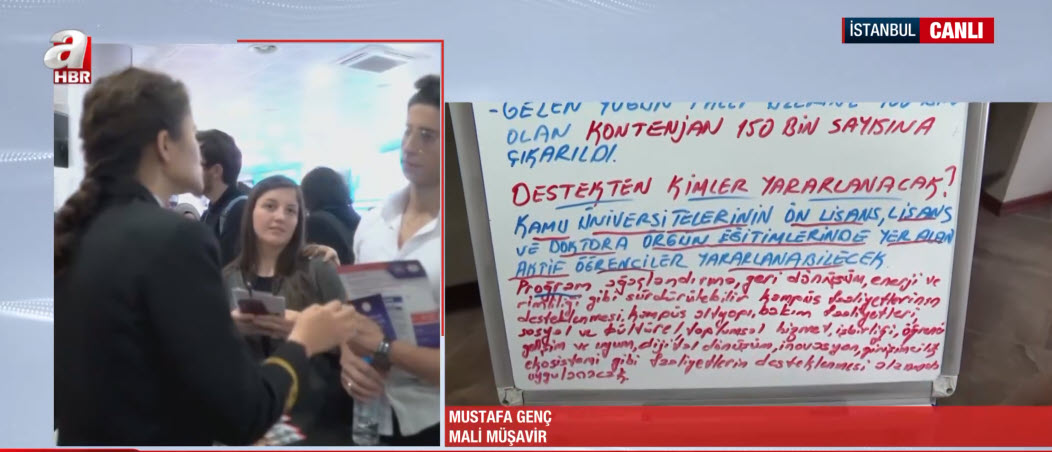 a
HBR
İSTANBUL CANLI
- GELEN YOĞUN
OLAN KONTENJAN 150 BİN SAYISINA
ÇIKARILDI.
DESTEKTEN KİMLER YARARLANACAK?
KAMU ÜNİVERSİTELERİNİN ÖN LİSANS, LİSANS
VE DOKTORA ÖRGÜN EĞİTİMLERİNDE YER ALAN
AKTİF ÖĞRENCİLER YARARLANABİLECEK.
Program ağaçlandırma, geri dönüşüm, enerji ve
rimliliği gibi sürdürülebilir kampüs faaliyetlerinin
desteklenmesi, kampüs altyapı, bakım faaliyetleri,
sosyal ve kültürel, toplumsal hizmet, işbirliği, öğrenci
gelişim ve uyum, dijital dönüşüm, inovasyon, girişimcilik
ekosistemi gibi faaliyetlerin desteklenmesi alanında
uygulanacak
MUSTAFA GENÇ
MALİ MÜŞAVİR